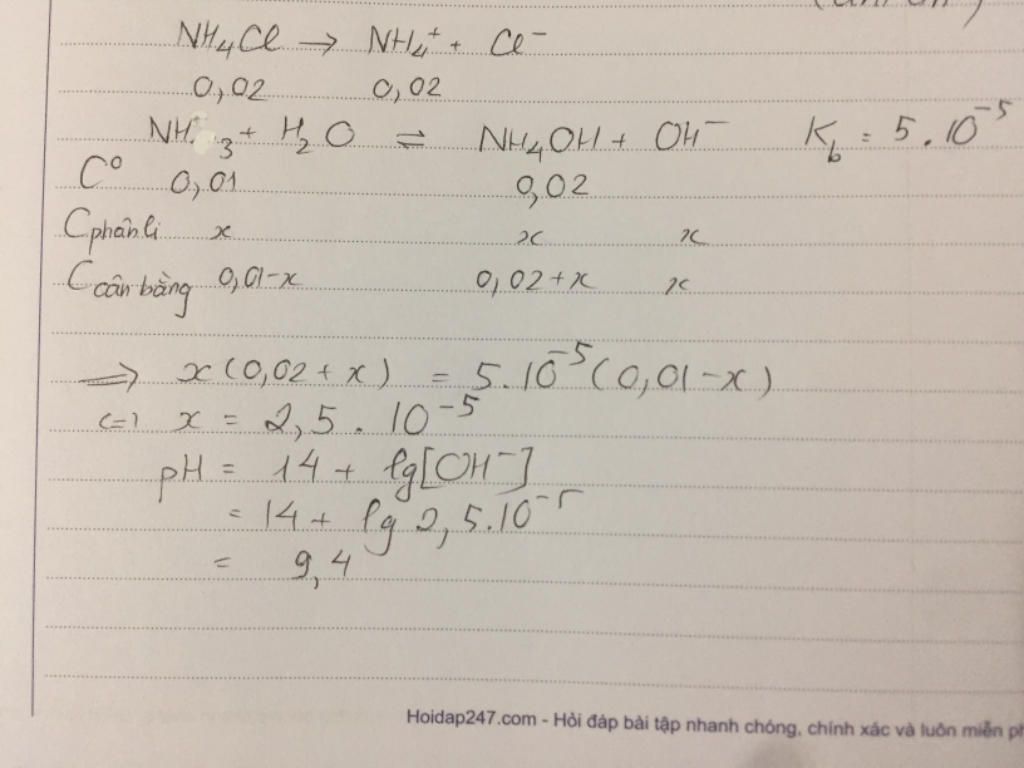 NH4Cl → NH4⁺ + Cl⁻
0,02 0,02
NH3 + H2O ⇌ NH4OH + OH⁻ Kb = 5.10⁻⁵
C⁰ 0,01 0,02
Cphân li x x x
Ccân bằng 0,01-x 0,02+x x
⟹ x(0,02 + x) = 5.10⁻⁵(0,01-x)
(=) x = 2,5. 10⁻⁵
pH = 14 + lg[OH⁻]
= 14 + lg 2,5.10⁻⁵
= 9,4
Hoidap247.com - Hỏi đáp bài tập nhanh chóng, chính xác và luôn miễn